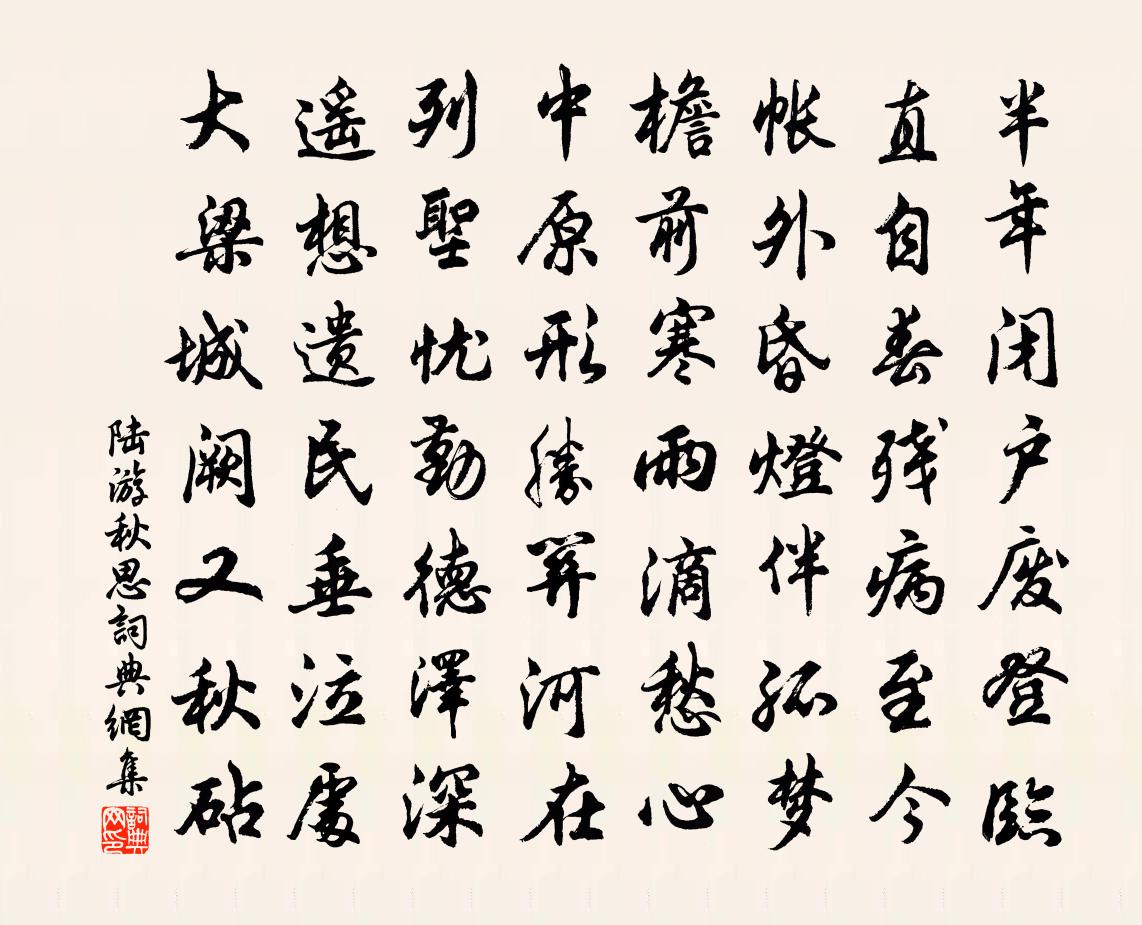 半年闭户废登臨
直自春残病至今
帐外昏燈伴孤梦
檐前寒雨滴愁心
中原形勝関河在
列聖忧勤德澤深
遥想遗民垂泣處
大梁城阙又秋砧
陆游秋思詞典網集
詞典网印